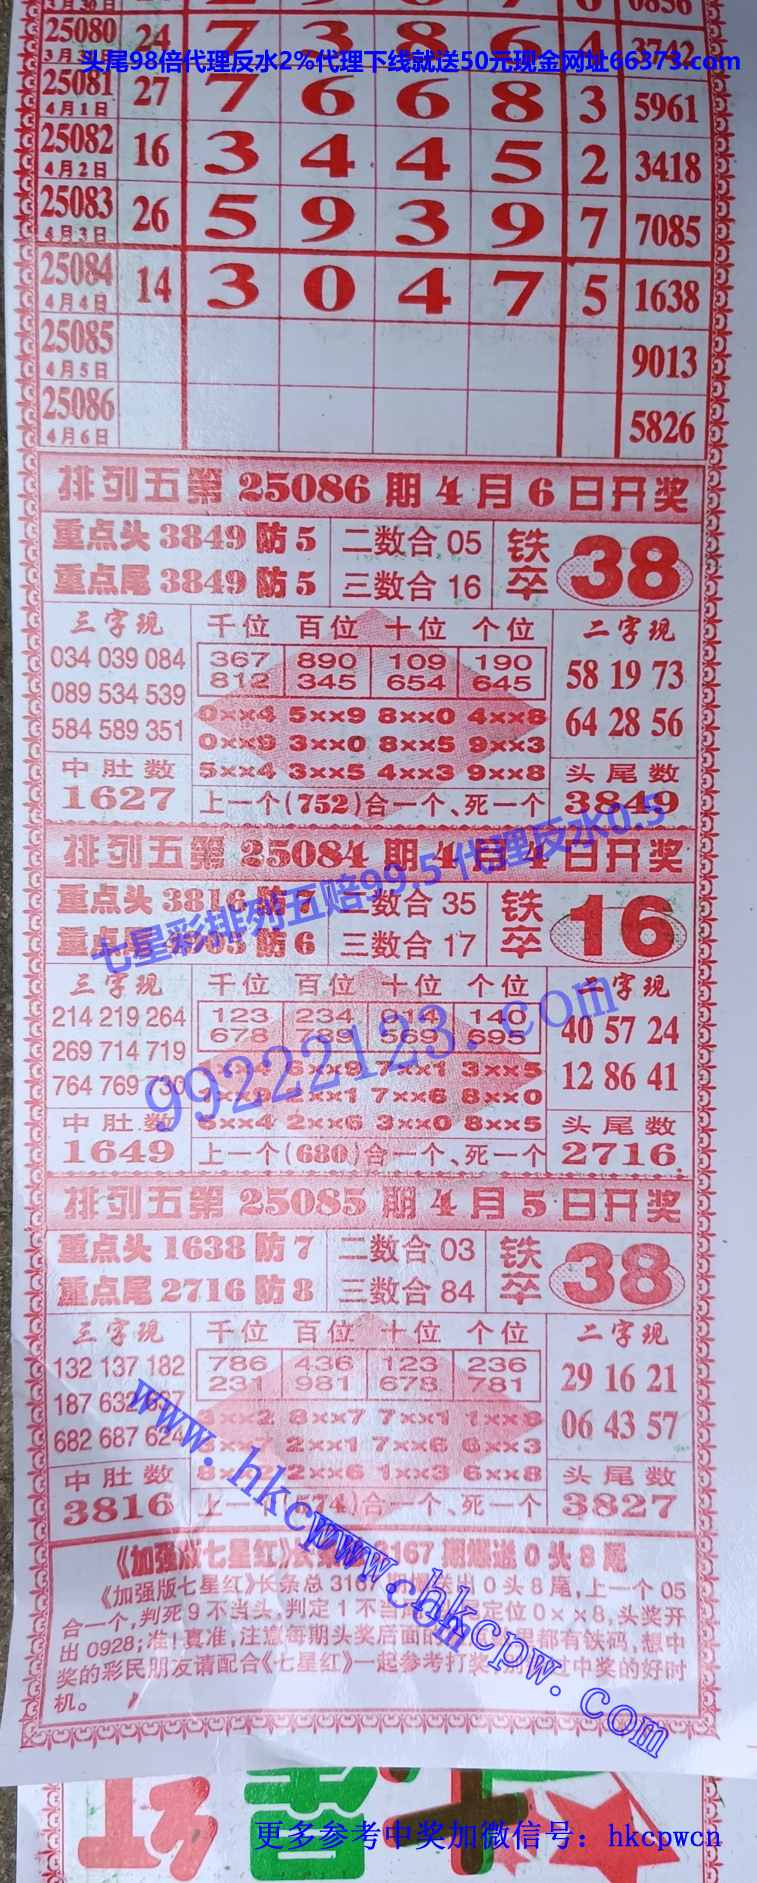 3月30日 6 0856
25080 24 7 3 8 6 4 3742
头尾98倍代理反水2%代理下线就送50元现金网址66373.com
25081 27 7 6 6 8 3 5961
4月1日
25082 16 3 4 4 5 2 3418
4月2日
25083 26 5 9 3 9 7 7085
4月3日
25084 14 3 0 4 7 5 1638
4月4日
25085 9013
4月5日
25086 5826
4月6日
排列五第25086期4月6日开奖
重点头3849防5 二数合05 铁卒 38
重点尾3849防5 三数合16
三字现 千位 百位 十位 个位 二字现
034 039 084 367 890 109 190 58 19 73
089 534 539 812 345 654 645
584 589 351 0××4 5××9 8××0 4××8 64 28 56
0××9 3××0 8××5 9××3
中肚数 5××4 3××5 4××3 9××8 头尾数
1627 上一个(752)合一个、死一个 3849
七星彩排列五赔99.5代理反水0.5
排列五第25084期4月4日开奖
重点头3816防7 二数合35 铁卒 16
重点尾 防6 三数合17
三字现 千位 百位 十位 个位 二字现
214 219 264 123 234 014 140 40 57 24
269 714 719 678 789 569 695
764 769 730 6××9 7××1 3××5 12 86 41
2××1 7××6 8××0
中肚数 2××6 3××0 8××5 头尾数
1649 上一个(680)合一个、死一个 2716
99222123.com
排列五第25085期4月5日开奖
重点头1638防7 二数合03 铁卒 38
重点尾2716防8 三数合84
三字现 千位 百位 十位 个位 二字现
132 137 182 786 436 123 236 29 16 21
187 632 637 231 981 678 781
682 687 624 8××7 7××1 06 43 57
2××1 7××6 6××3
中肚数 2××6 1××3 6××8 头尾数
3816 上一 (574)合一个、死一个 3827
www.hkcpww.com
《加强版七星红》长条总3167期爆送0头8尾
《加强版七星红》长条总3167 送出0头8尾,上一个05
合一个,判死9不当头,判定1不当 定位0××8,头奖开
出0928;准!真准,注意每期头奖后面的 都有铁码,想中
奖的彩民朋友请配合《七星红》一起参考打奖, 过中奖的好时
机。
hkcpw.com
更多参考中奖加微信号：hkcpwcn